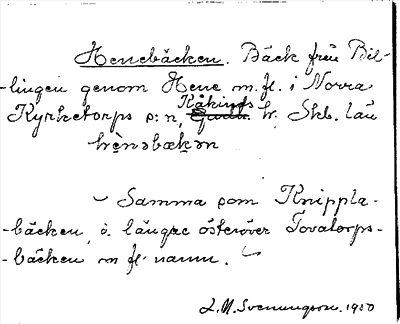 Henebäcken. Bäck från Bil-
-lingen genom Hene m. fl. i Norra
Kåkinds
Kyrketorps s:n, h. Skb. län
hènəbækən
Samma som Knippla-
-bäcken, o. längre österöver Tovatorps-
-bäcken m fl namn.
L. M. Svenungsson. 1930